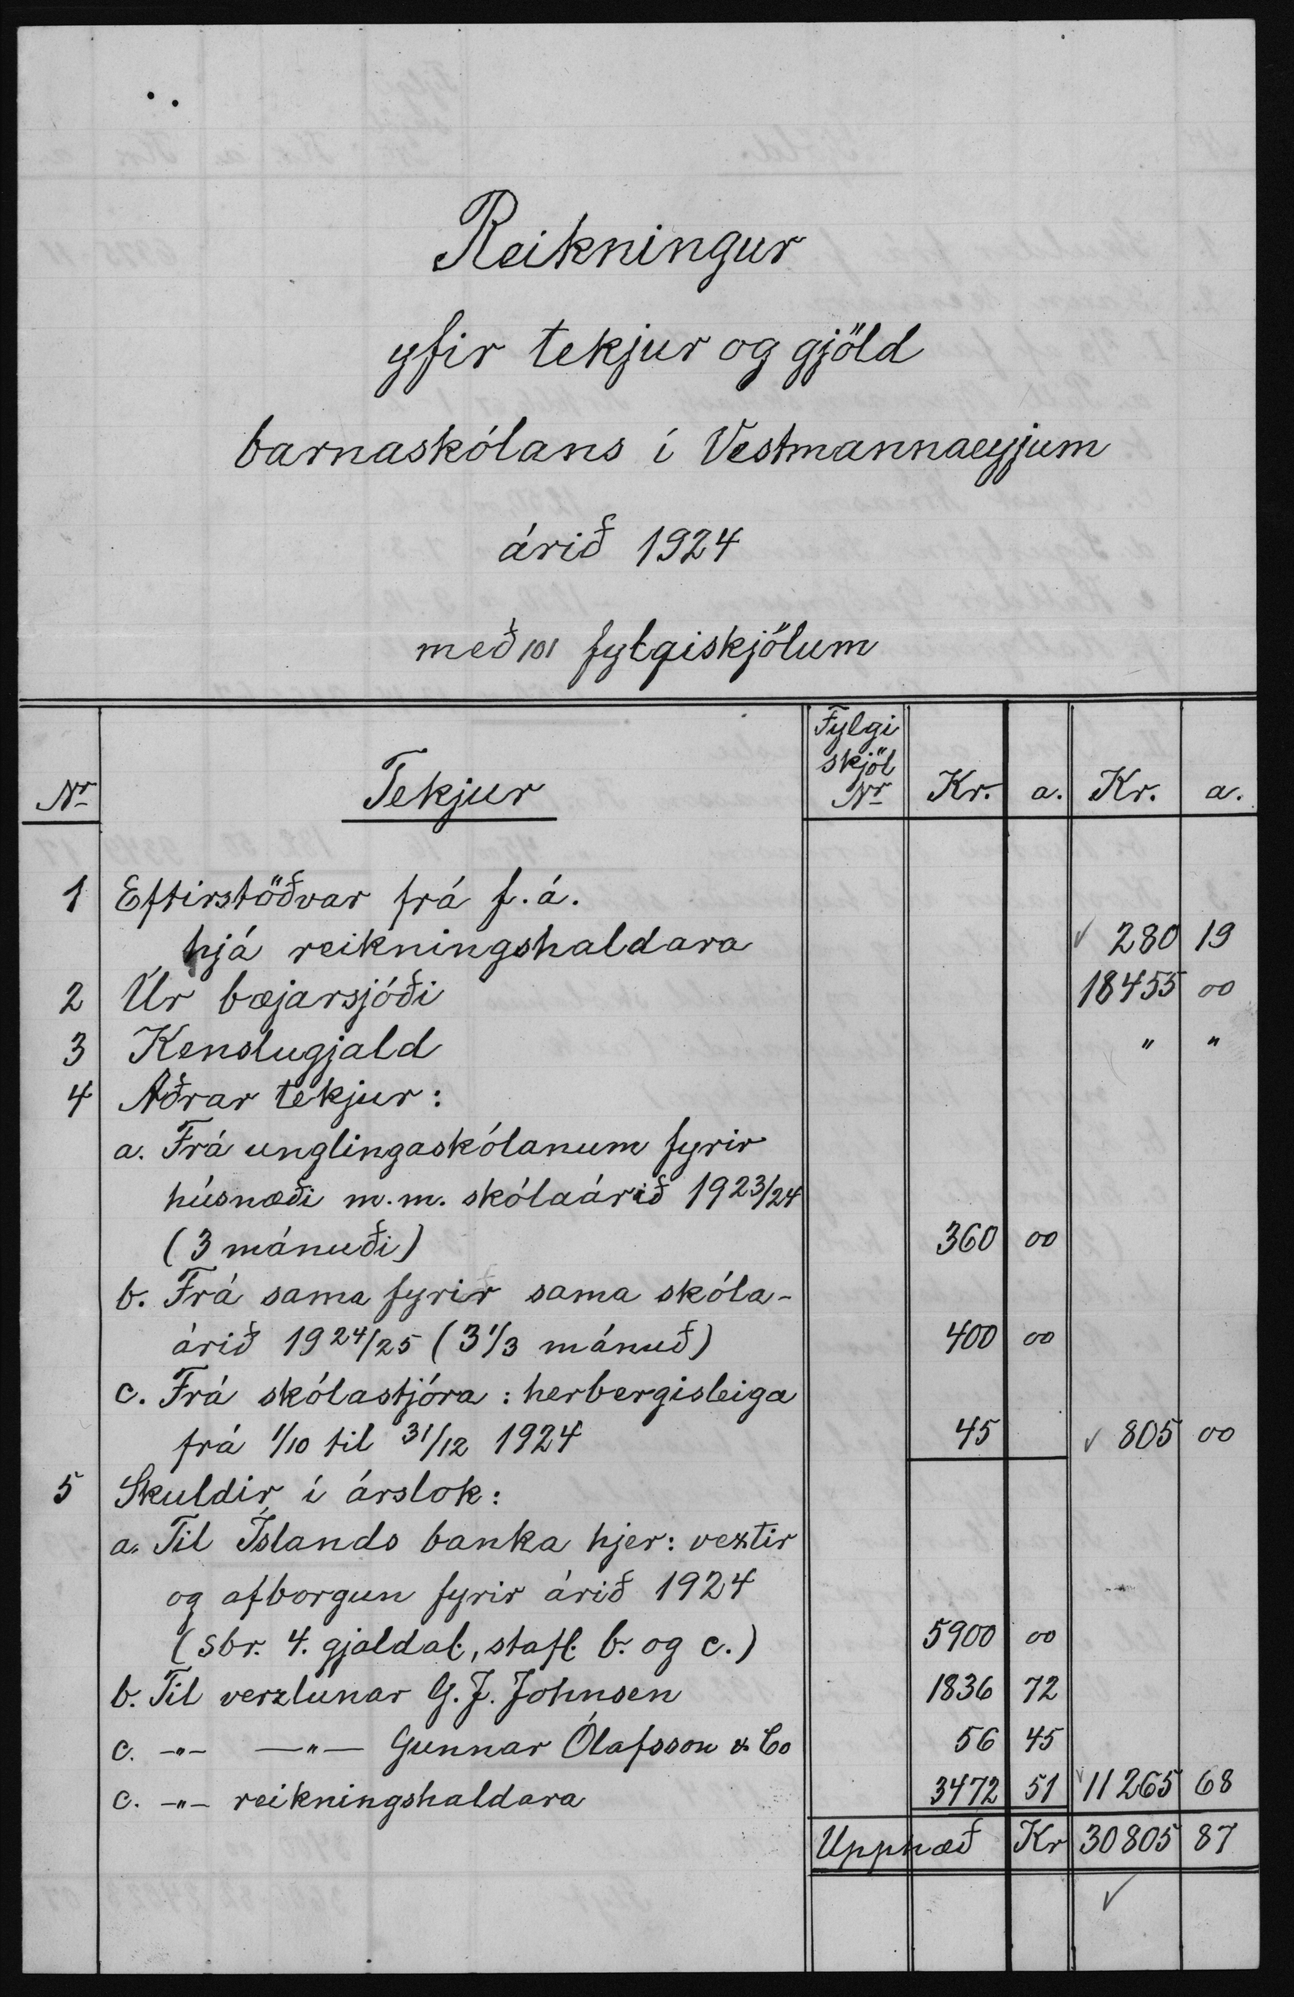 Reikningur
yfir tekjur og gjöld
barnaskólans í Vestmannaeyjum
árið 1924
með 101 fylgiskjölum
Nr Tekjur Fylgi skjöl Nr Kr. a. Kr. a.
1 Eftirstöðvar frá f. á.
hjá reikningshaldara 280 19
2 Úr bæjarsjóði 18455 00
3 Kenslugjald " "
4 Aðrar tekjur:
a. Frá unglingaskólanum fyrir
húsnæði m.m. skólaárið 1923/24
(3 mánuði) 360 00
b. Frá sama fyrir sama skóla-
árið 1924/25 (3 1/3 mánuð) 400 00
c. Frá skólastjóra: herbergisleiga
frá 1/10 til 31/12 1924 45 805 00
5 Skuldir í árslok:
a. Til Íslands banka hjer: vextir
og afborgun fyrir árið 1924
(sbr. 4. gjaldal., stafl. b. og c.) 5900 00
b. Til verzlunar G. J. Johnsen 1836 72
c. -"- -"- Gunnar Ólafsson & Co 56 45
c. -"- reikningshaldara 3472 51 11265 68
Upphæð Kr 30805 87